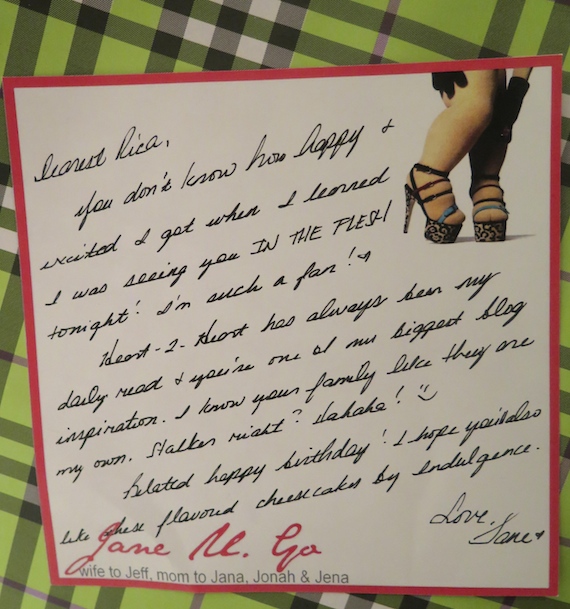 Dearest Rica,
You don't know how happy +
excited I got when I learned
I was seeing you IN THE FLESH
tonight! I'm such a fan!
Heart-2-Heart has always been my
daily read + you're one of my biggest blog
inspiration. I know your family like they are
my own. Stalker right? Hahaha!
Belated happy birthday! I hope you'll also
like these flavored cheesecakes by Indulgence.
Love,
Jane
Jane U. Go
wife to Jeff, mom to Jana, Jonah & Jena